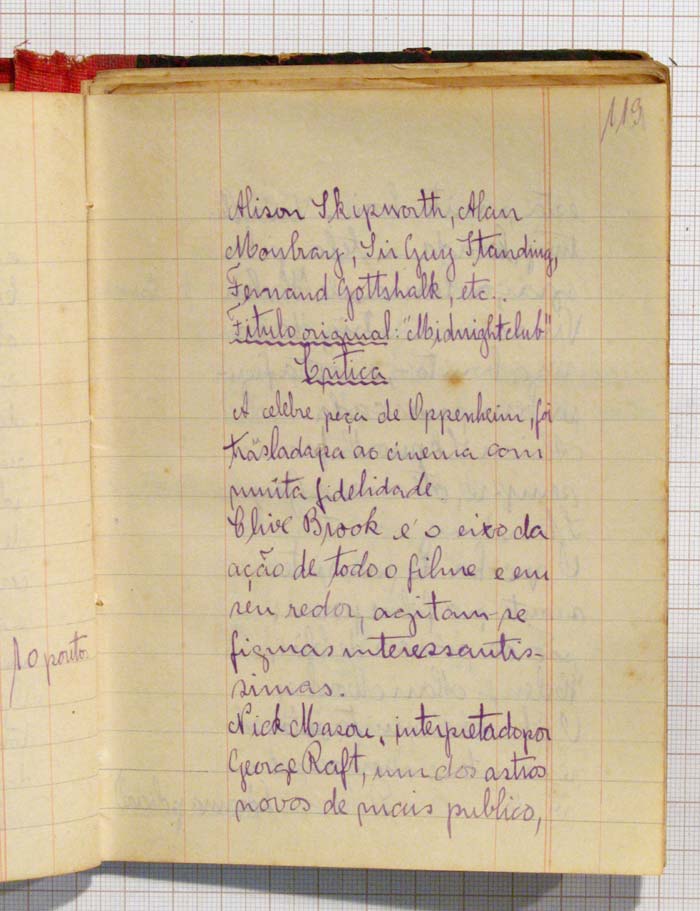 119
Alison Skipworth, Alan
Mowbray, Sir Guy Standing,
Fernand Gottshalk, etc..
Titulo original: "Midnight club"
Crítica
A celebre peça de Oppenheim, foi
trasladada ao cinema com
muita fidelidade
Clive Brook é o eixo da
ação de todo o filme e em
seu redor, agitam-se
figuras interessantis-
simas.
Nick Mason, interpretado por
George Raft, um dos astros
novos de mais publico,
10 pontos